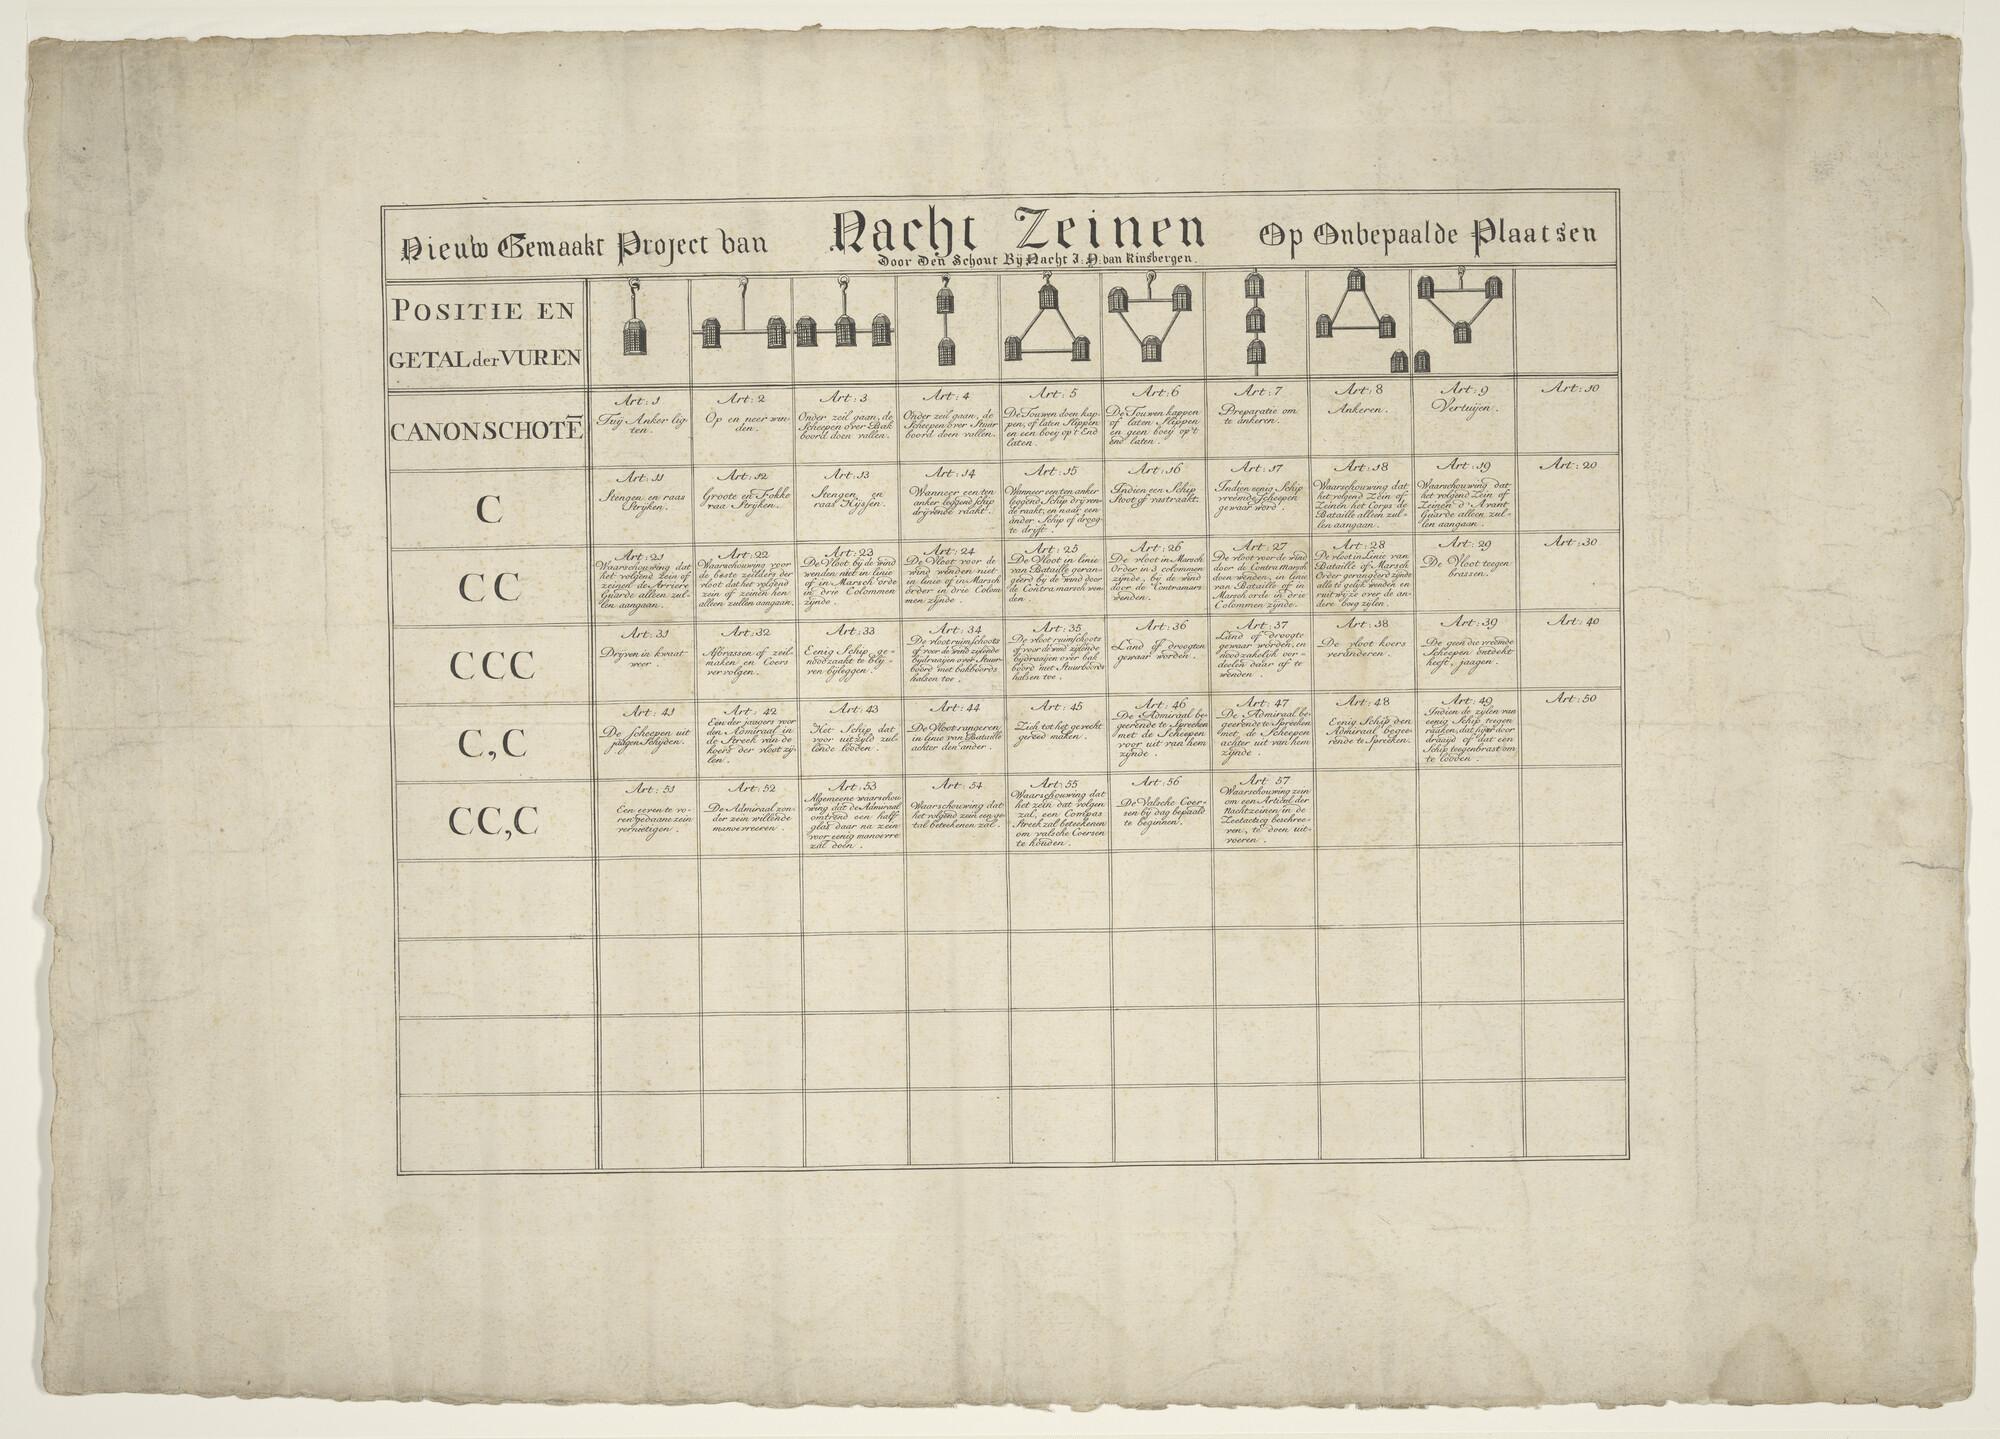 Nieuw Gemaakt Project van Nacht Zeinen Op Onbepaalde Plaatsen
Door Den Schout Bij Nacht J: H: van Kinsbergen.
POSITIE EN
GETAL der VUREN
CANONSCHOTE̅
Art: 1
Tuy Anker lig
ten.
Art: 2
Op en neer win
den.
Art: 3
Onder zeil gaan, de
Scheepen over Bak
boord doen vallen.
Art: 4
Onder zeil gaan, de
Scheepen over Stuur
boord doen vallen.
Art: 5
De Touwen doen kap-
pen, of laten Slippen
en een boey op't End
laten.
Art: 6
De Touwen kappen
of laten Slippen
en geen boey op't
end laten.
Art: 7
Preparatie om
te ankeren.
Art: 8
Ankeren.
Art: 9
Vertuijen.
Art: 10
C
Art: 11
Stengen en raas
Strijken.
Art: 12
Groote en Fokke
raa Strijken.
Art: 13
Stengen en
raas Hijssen.
Art: 14
Wanneer een ten
anker leggend schip
drijvende raakt.
Art: 15
Wanneer een ten anker
leggend Schip drijven-
de raakt, en naar een
ander Schip of droog-
te drijft.
Art: 16
Indien een Schip
Stoot of vastraakt.
Art: 17
Indien eenig Schip
vreemde Scheepen
gewaar word.
Art: 18
Waarschouwing dat
het volgend Zein of
Zeinen het Corps de
Bataille alleen zul-
len aangaan.
Art: 19
Waarschouwing dat
het volgend Zein of
Zeinen d'Avant
Guarde alleen zul-
len aangaan.
Art: 20
CC
Art: 21
Waarschouwing dat
het volgend zein of
zeinen de Arriere
Guarde alleen zul-
len aangaan.
Art: 22
Waarschouwing voor
de beste zeilders der
vloot dat het volgend
zein of zeinen hen
alleen zullen aangaan.
Art: 23
De Vloot bij de wind
wenden niet in linie
of in Marsch orde
in drie Colommen
zijnde.
Art: 24
De Vloot voor de
wind wenden niet
in linie of in Marsch
order in drie Colom
men zijnde.
Art: 25
De Vloot in linie
van Bataille geran-
geerd bij de wind door
de Contramarsch wen
den.
Art: 26
De vloot in Marsch
Order in 3 colommen
zijnde, bij de wind
door de Contramars
wenden.
Art: 27
De vloot voor de wind
door de Contra marsch
doen wenden, in linie
van Bataille of in
Marsch orde in drie
Colommen zijnde.
Art: 28
De vloot in Linie van
Bataille of Marsch
Order gerangeerd zijnde
alle te gelijk wenden en
ruitwijze over de an-
dere boeg zijlen.
Art: 29
De Vloot teegen
brassen.
Art: 30
CCC
Art: 31
Drijven in kwaat
weer.
Art: 32
Afbrassen of zeil-
maken en Coers
vervolgen.
Art: 33
Eenig Schip ge-
noodzaakt te blij-
ven bijleggen.
Art: 34
De vloot ruimschoots
of voor de wind zijlende
bijdraaijen over Stuur
boord met bakboords
halsen toe.
Art: 35
De vloot ruimschoots
of voor de wind zijlende
bijdraaijen over bak
boord met Stuurboords
halsen toe.
Art: 36
Land of droogten
gewaar worden.
Art: 37
Land of droogte
gewaar worden, en
noodzakelijk oor-
deelen daar af te
wenden.
Art: 38
De vloot koers
veranderen.
Art: 39
De geen die vreemde
Scheepen ontdekt
heeft, jaagen.
Art: 40
C,C
Art: 41
De scheepen uit
jaagen Schijden.
Art: 42
Een der jaagers voor
den Admiraal in
de Streek van de
koers der vloot zij-
len.
Art: 43
Het Schip dat
voor uit zijld zul-
lende looden.
Art: 44
De Vloot rangeren
in linie van Bataille
achter den ander.
Art: 45
Zich tot het gevecht
gereed maken.
Art: 46
De Admiraal be-
geerende te Spreeken
met de Scheepen
voor uit van hem
zijnde.
Art: 47
De Admiraal be-
geerende te Spreeken
met de Scheepen
achter uit van hem
zijnde.
Art: 48
Eenig Schip den
Admiraal begee-
rende te Spreeken.
Art: 49
Indien de zijlen van
eenig Schip teegen
raaken, dat hij er door
draaijd of dat een
Schip teegenbrast om
te looden.
Art: 50
CC,C
Art: 51
Een even te vo-
ren gedaane zein
vernietigen.
Art: 52
De Admiraal zon-
der zein willende
manoevreeren.
Art: 53
Algemeene waarschou
wing dat de Admiraal
omtrend een half
glas daar na zein
voor eenig manoevre
zal doen.
Art: 54
Waarschouwing dat
het volgend zein een ge-
tal beteekenen zal.
Art: 55
Waarschouwing dat
het zein dat volgen
zal, een Compas
Streek zal beteekenen
om valsche Coersen
te houden.
Art: 56
De Valsche Coer-
sen bij dag bepaald
te beginnen.
Art: 57
Waarschouwing zein
om een Articul der
Nachtzeinen in de
Zeetacticq beschree-
ven, te doen uit-
voeren.